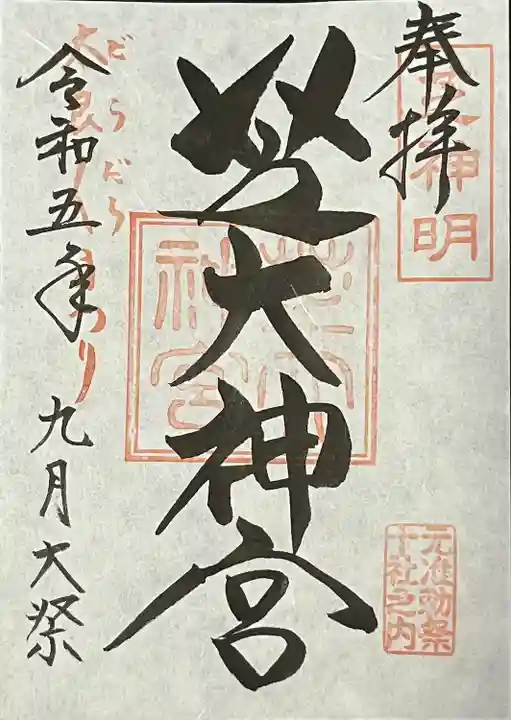 奉拝
芝神明
芝大神宮
元准勅祭
十社之内
令和五年九月大祭
だらだら